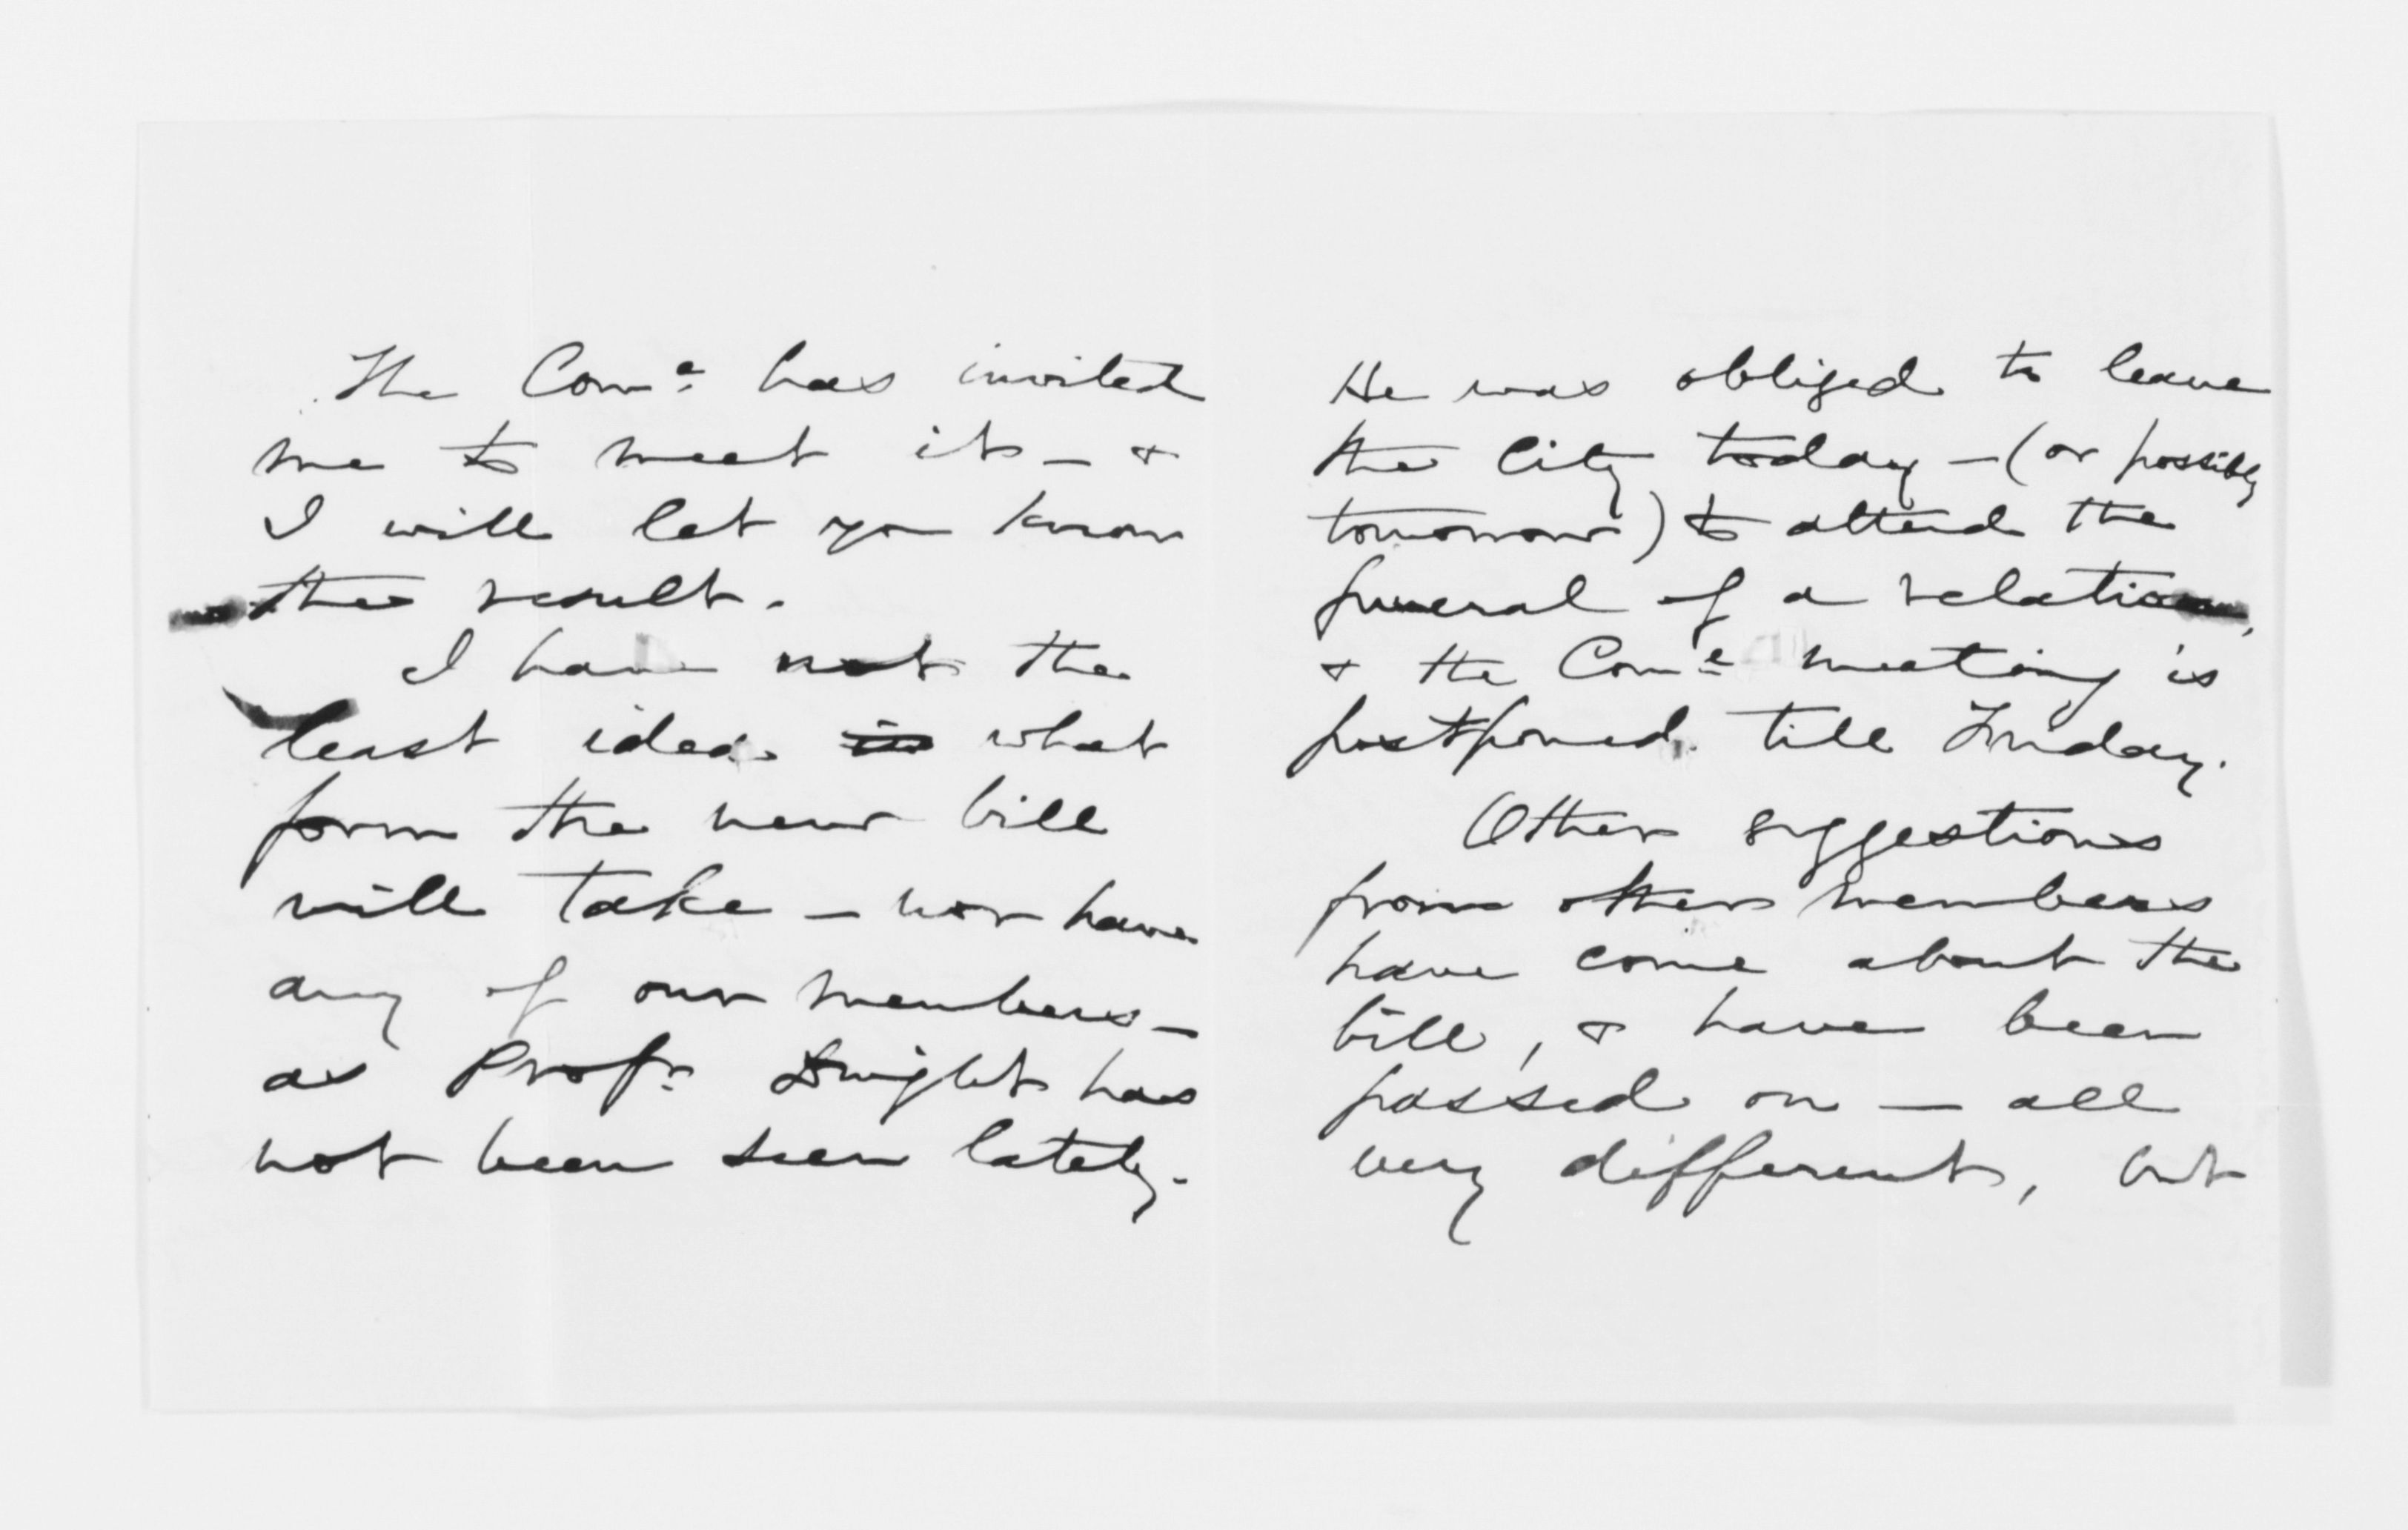 The Com.e has invited
me to meet it — &
I will let you know
the result.
I have not the
least idea in what
form the new bill
will take — nor have
any of our members —
as Profr. Dwight has
not been seen lately.
He was obliged to leave
the City today — (or possibly
tomorrow) to attend the
funeral of a relation,
& the Com.e meeting is
postponed till Friday.
Other suggestions
from other members
have come about the
bill, & have been
passed on — all
very different, but